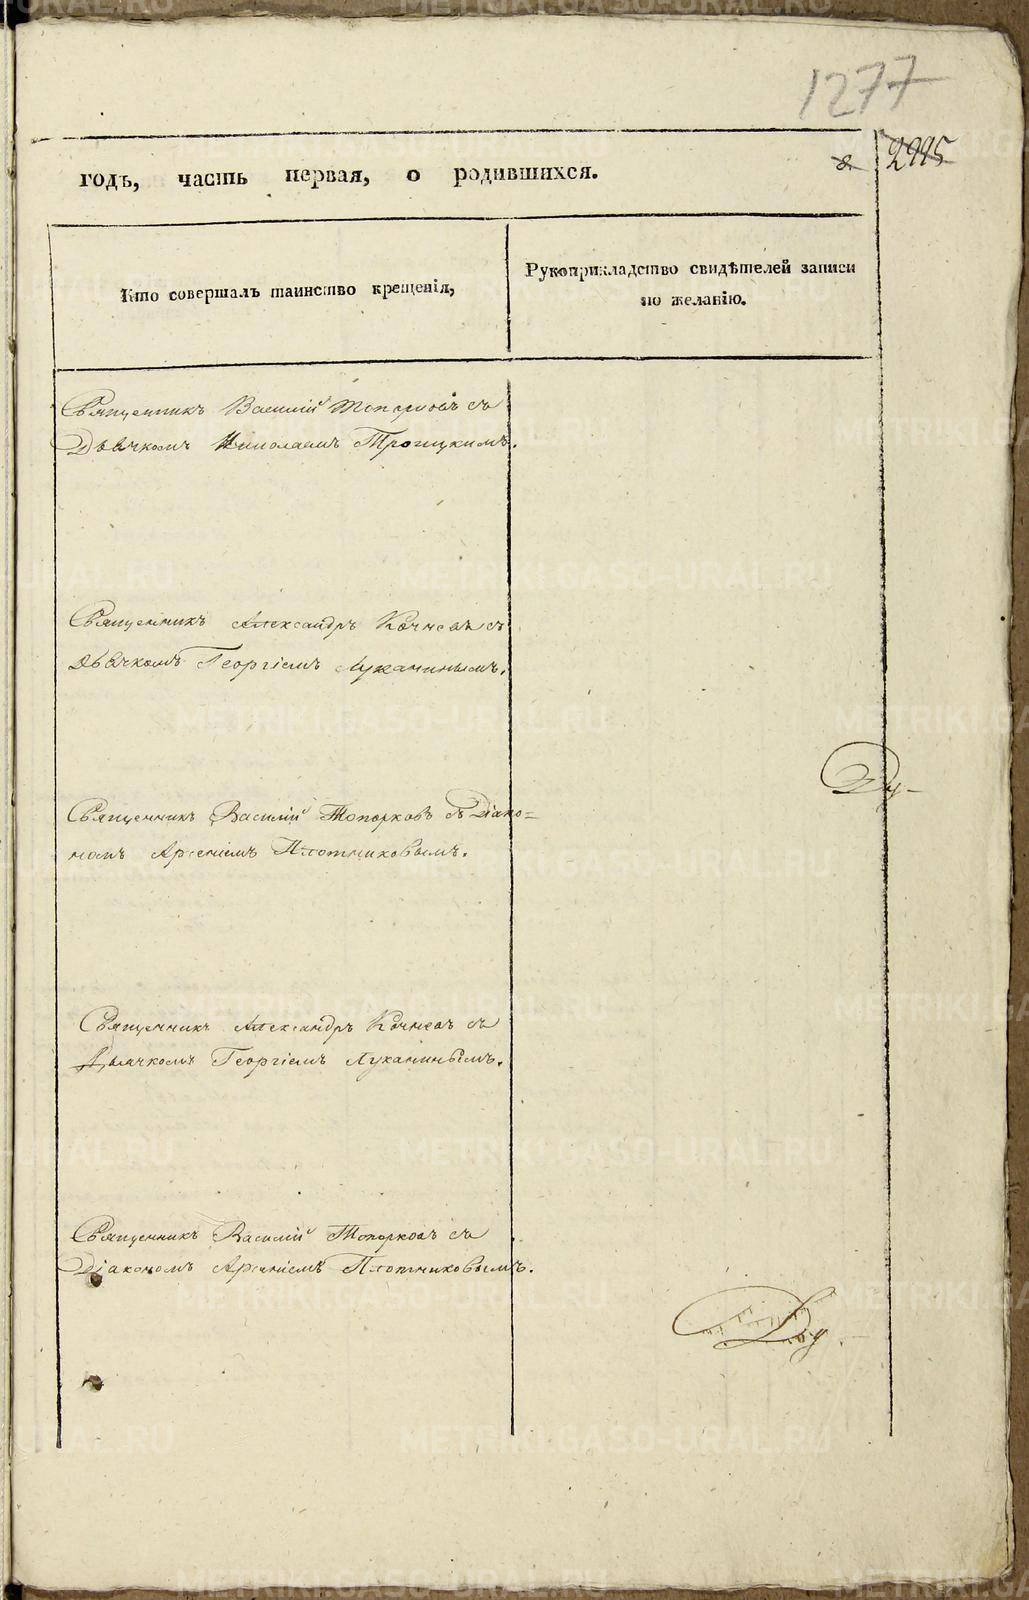 1277
2995
годъ, часть первая, о родившихся.
Кто совершалъ таинство крещенія,
Рукоприкладство свидѣтелей записи
по желанію.
Священникъ Василій Топорковъ съ
Дьячкомъ Николаемъ Троицкимъ.
Священникъ Александръ Кочневъ съ
дьячкомъ Георгіемъ Луканинымъ.
Священникъ Василій Топорковъ съ Діако=
номъ Арсеніемъ Плотниковымъ.
Священникъ Александръ Кочневъ съ
Дьячкомъ Георгіемъ Луканинымъ.
Священникъ Василій Топорковъ съ
Діакономъ Арсеніемъ Плотниковымъ.
METRIKI.GASO-URAL.RU